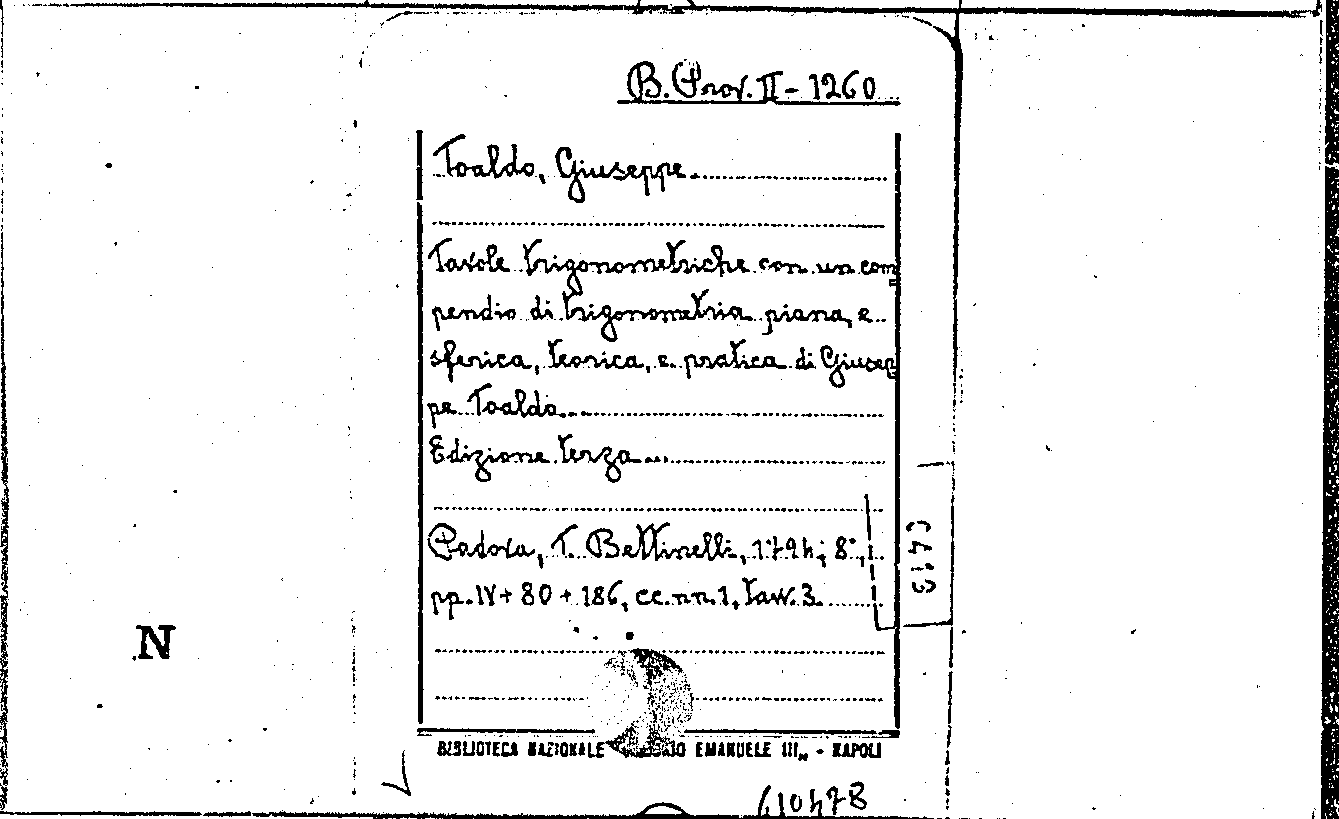 B. Prov. II - 1260
Toaldo, Giuseppe.
Tavole trigonometriche con un com
pendio di trigonometria piana, e
sferica, teorica, e pratica di Giusep
pe Toaldo...
Edizione terza...
Padova, T. Bettinelli, 1794; 8°,
pp. IV + 80 + 186, cc. nn. 1, tavv. 3.
C413
N
BIBLIOTECA NAZIONALE EMANUELE III" - NAPOLI
610478